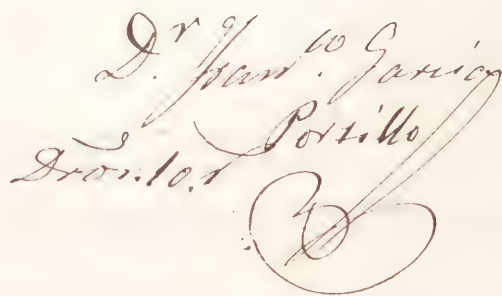 Dr. Fran.co Garcia
Portillo